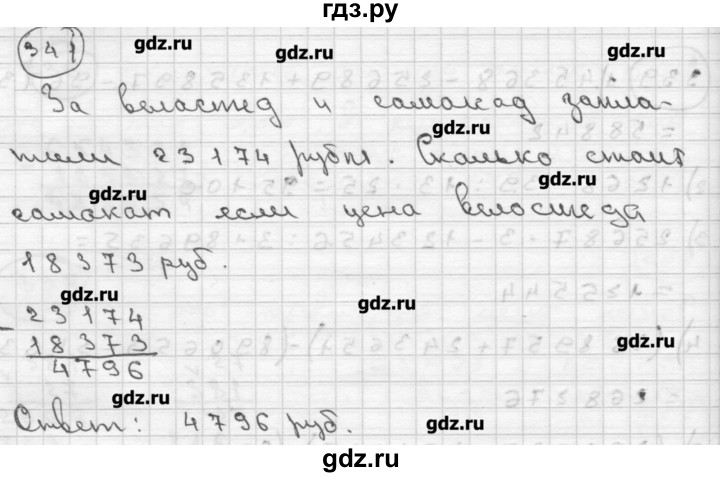 гдз.ру
341
gdz.ru
gdz.ru
gdz.ru
За веластед и самакад запла-
gdz.ru
тили 23174 рубля. Сколько стоит
gdz.ru
gdz.ru
самакат если цена велостеда
18373 руб.
gdz.ru
gdz.ru
- 23174
18373
gdz.ru
4796
gdz.ru
Ответ: 4796 руб.
gdz.ru
gdz.ru